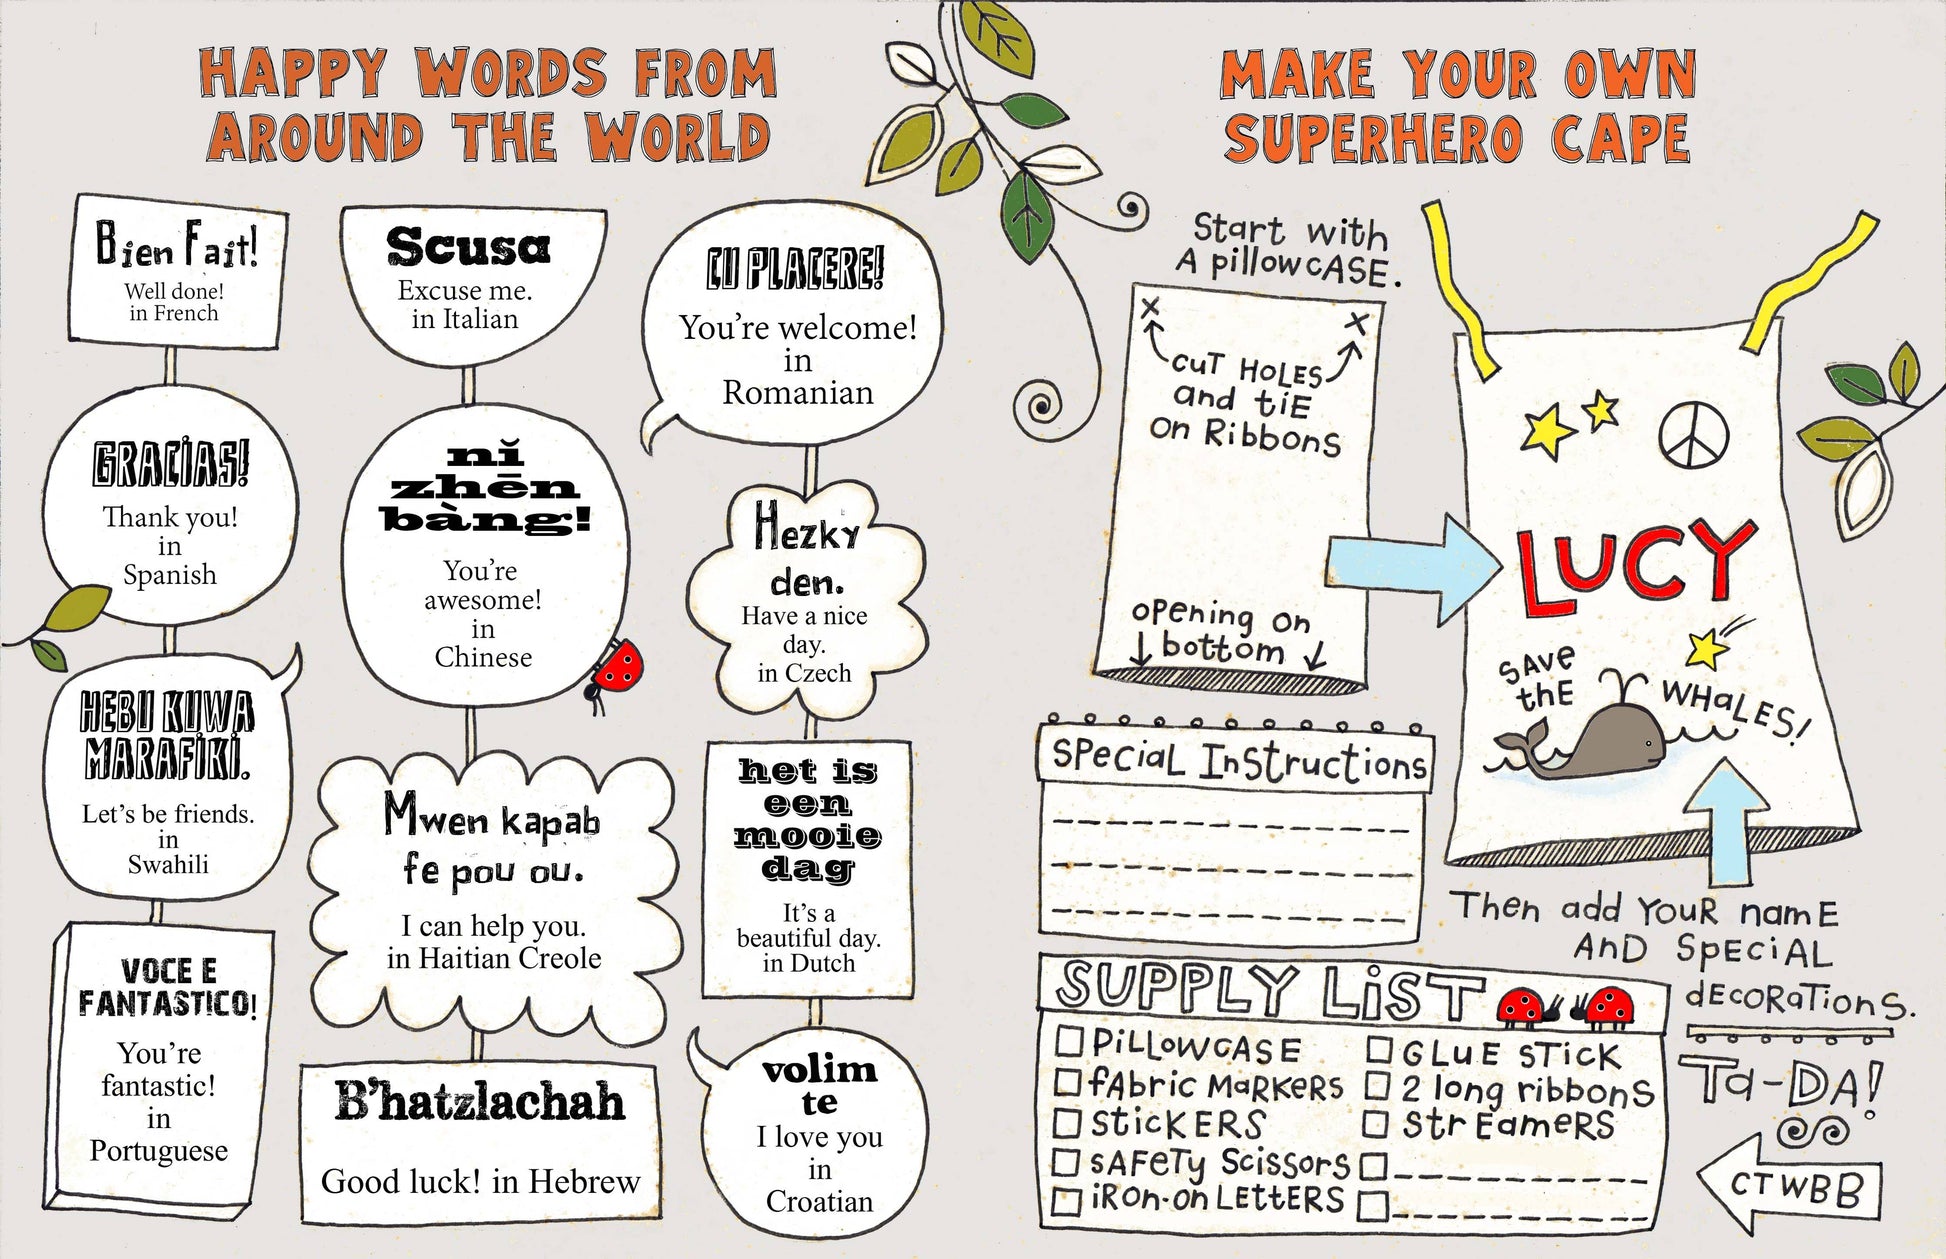 HAPPY WORDS FROM
AROUND THE WORLD
Bien Fait!
Well done!
in French
GRACIAS!
Thank you!
in
Spanish
HEBU KUWA
MARAFIKI.
Let's be friends.
in
Swahili
VOCE E
FANTASTICO!
You're
fantastic!
in
Portuguese
Scusa
Excuse me.
in Italian
nǐ
zhēn
bàng!
You're
awesome!
in
Chinese
Mwen kapab
fe pou ou.
I can help you.
in Haitian Creole
B'hatzlachah
Good luck! in Hebrew
CU PLACERE!
You're welcome!
in
Romanian
Hezky
den.
Have a nice
day.
in Czech
het is
een
mooie
dag
It's a
beautiful day.
in Dutch
volim
te
I love you
in
Croatian
MAKE YOUR OWN
SUPERHERO CAPE
Start with
A pillowcASE.
X X
cuT HOLES
and tiE
on RibbonS
oPening on
bottom
LUCY
SAVe
thE
WHaLES!
Then add YouR namE
AnD SpEciAL
dEcoRaTionS.
SPeciaL InStructionS
SUPPLY LiST
PiLLowCASE
fAbric MaRKeRS
SticKERS
SAFeTy ScissorS
iRon-on LEttERS
GLuE STicK
2 long ribbonS
Str EameRS
Ta-DA!
CTWBB